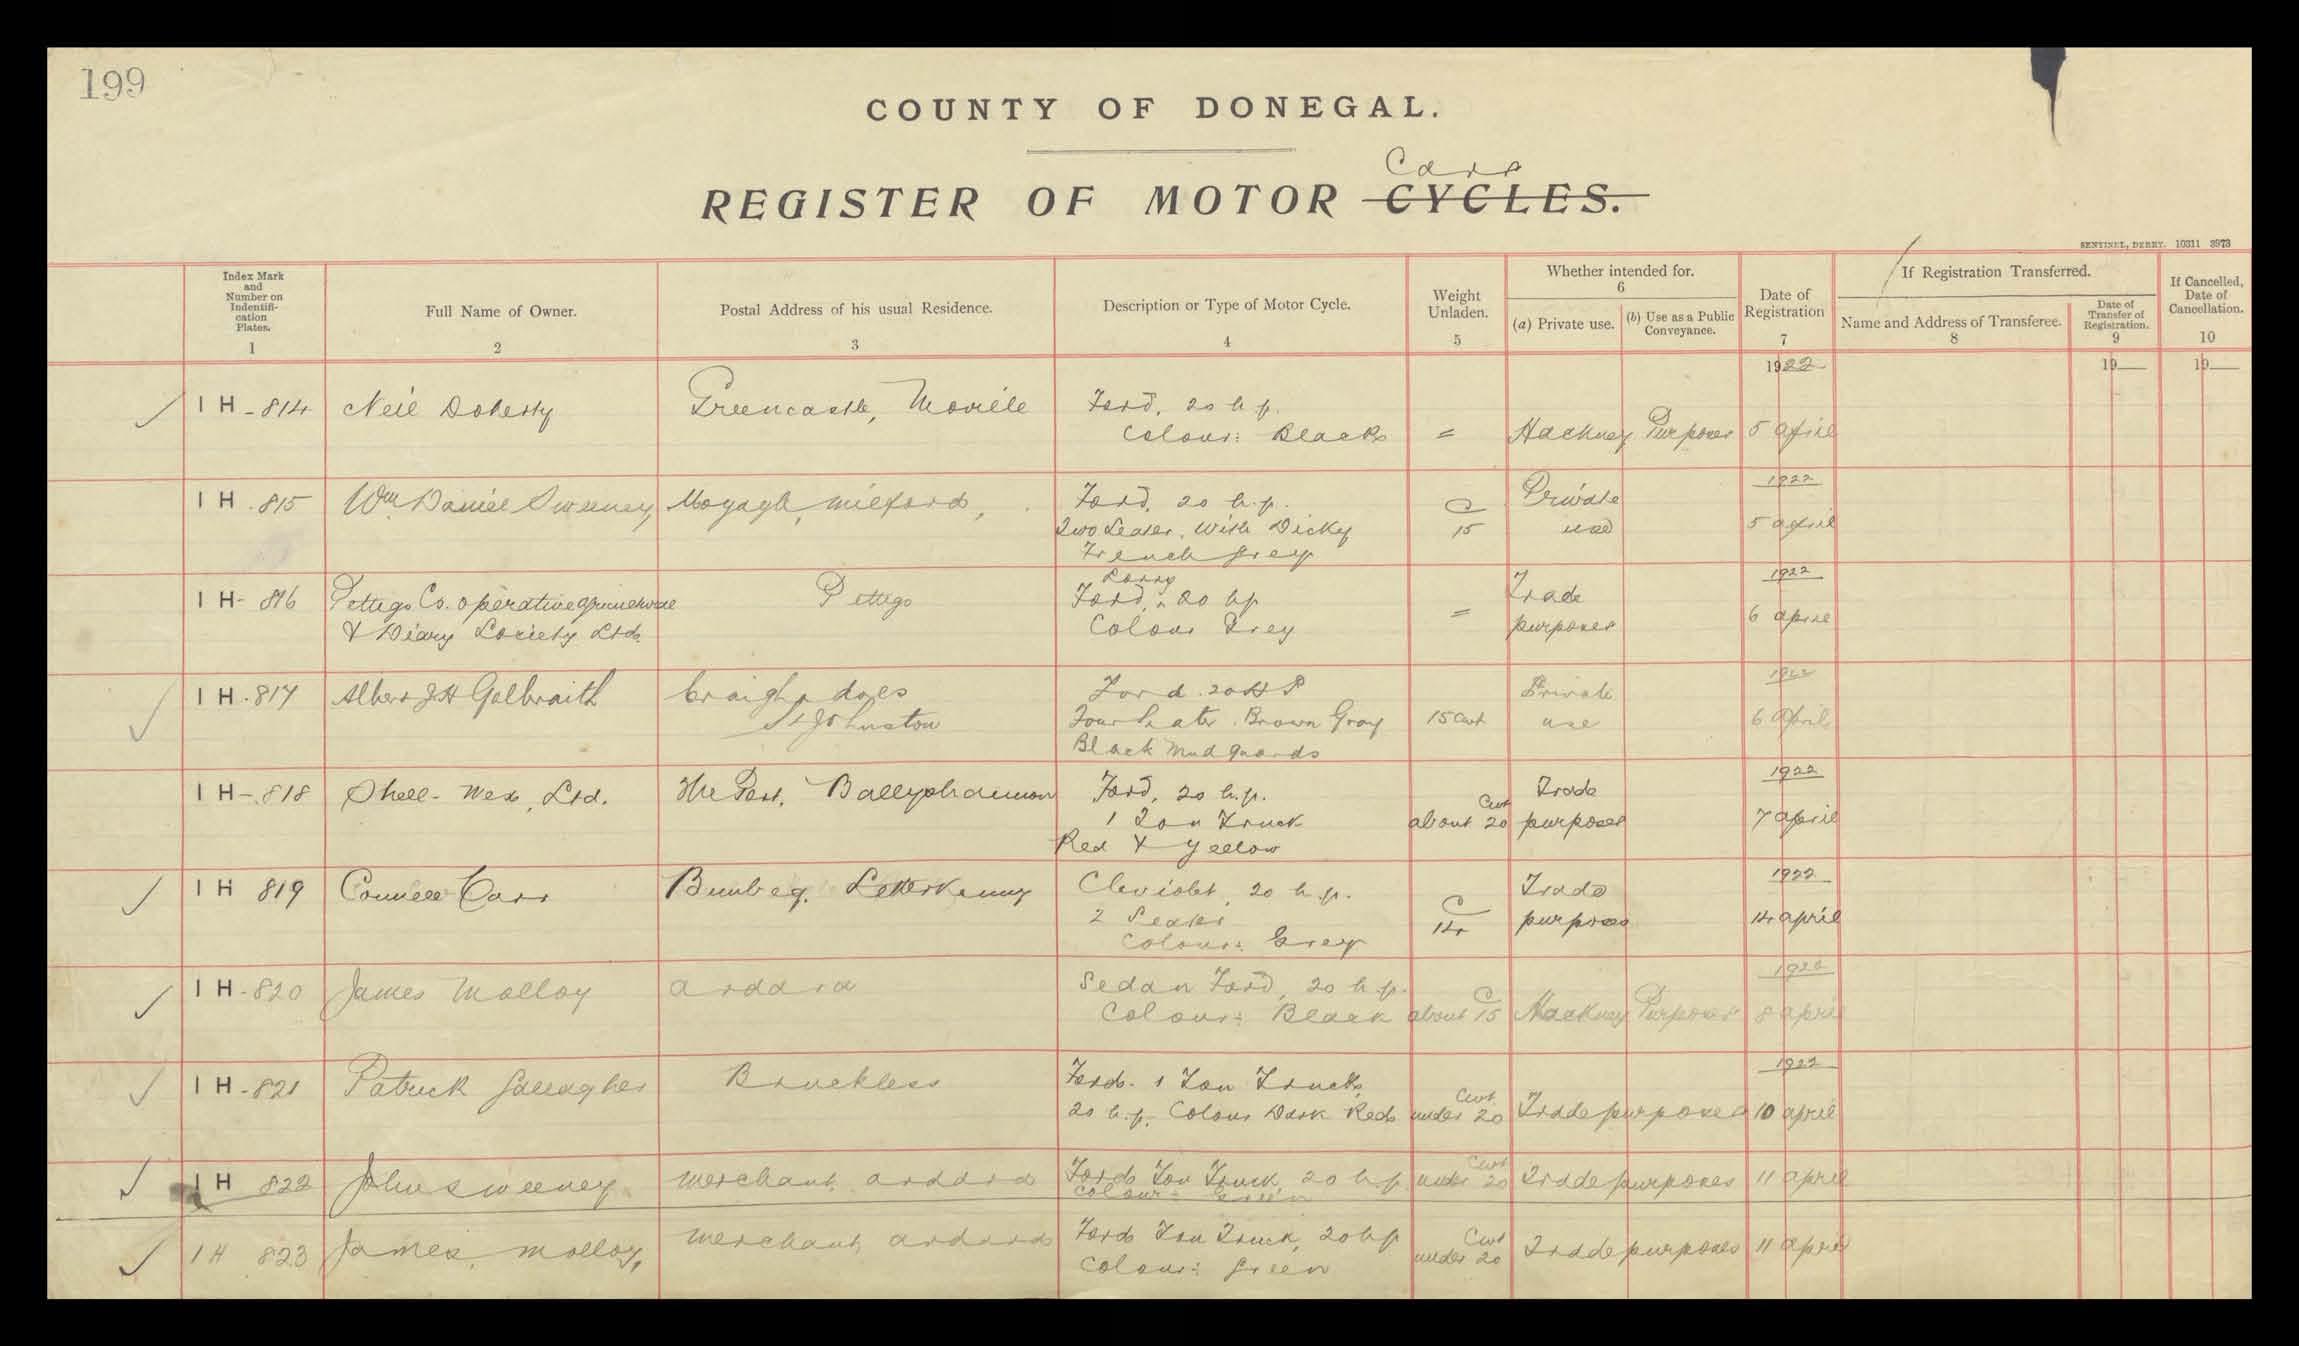 199
COUNTY OF DONEGAL.
Cars
REGISTER OF MOTOR CYCLES.
SENTINEL, DERRY. 10311 3973
Index Mark and Number on Indentifi-cation Plates. 1
Full Name of Owner. 2
Postal Address of his usual Residence. 3
Description or Type of Motor Cycle. 4
Weight Unladen. 5
Whether intended for. 6
(a) Private use.
(b) Use as a Public Conveyance.
Date of Registration 7
If Registration Transferred.
Name and Address of Transferee. 8
Date of Transfer of Registration. 9
If Cancelled, Date of Cancellation. 10
1922 19 19
IH-814 Neil Doherty Greencastle, Moville Ford, 20 h.p.
Colour: Black = Hackney Purposes 5 April
1922
IH.815 Wm Daniel Sweeney Moyagh, Milford, Ford, 20 h.p. C Private
Two Seater, With Dicky 15 use 5 April
French Grey
1922
Lorry
IH-816 Pettigo Co. operative Agricultural Pettigo Ford, 20 hp Trade
& Diary Society Ltd. Colour Grey = purposes 6 April
1922
IH.817 Albert J H Galbraith Craighadoes Ford. 20 H P Private
St Johnston Four Seater. Brown Gray 15 Cwt use 6 April
Black Mud guards
1922
IH-818 Shell-Mex, Ltd. The Port, Ballyshannon Ford, 20 h.p. Trade
1 Ton Truck about 20 Cwt purposes 7 April
Red & Yellow
1922
IH 819 Connell Carr Bunbeg, Letterkenny Cheviolet, 20 h.p. C Trade
2 Seater 14 purposes 14 April
Colour: Grey
1922
IH-820 James Molloy Ardara Sedan Ford, 20 h.p.
Colour: Black about C 15 Hackney Purposes 8 April
1922
IH-821 Patrick Gallagher Bruckless Ford. 1 Ton Truck,
20 h.p. Colour Dark Red under 20 Cwt Trade purposes 10 April
IH 822 John Sweeney Merchant Ardara Ford Ton Truck, 20 h.p. under 20 Cwt Trade purposes 11 April
Colour: Green
IH 823 James Molloy, Merchant Ardara Ford Ton Truck, 20 hp
Colour: Green under 20 Cwt Trade purposes 11 April